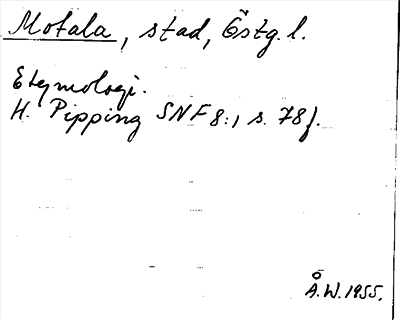 Motala, stad, Östg. l.
Etymologi.
H. Pipping SNF 8:1 s. 78 f.
Å.W. 1955.